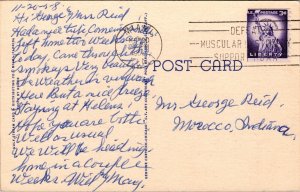 11-20-58
Hi George & Mrs Reid
Had a nice
left home two Weeks ago
today. Came through the
Smokys. Very beautiful
The Weather is warm
but a nice breeze.
Staying at Helens.
Hope you are both
Well as usual
We will be heading
home in a couple
Weeks. Will & Mary.
DEF
MUSCULAR
SUPPOR
LIBERTY
3¢
POST CARD
Mr George Reid.
Morocco, Indiana